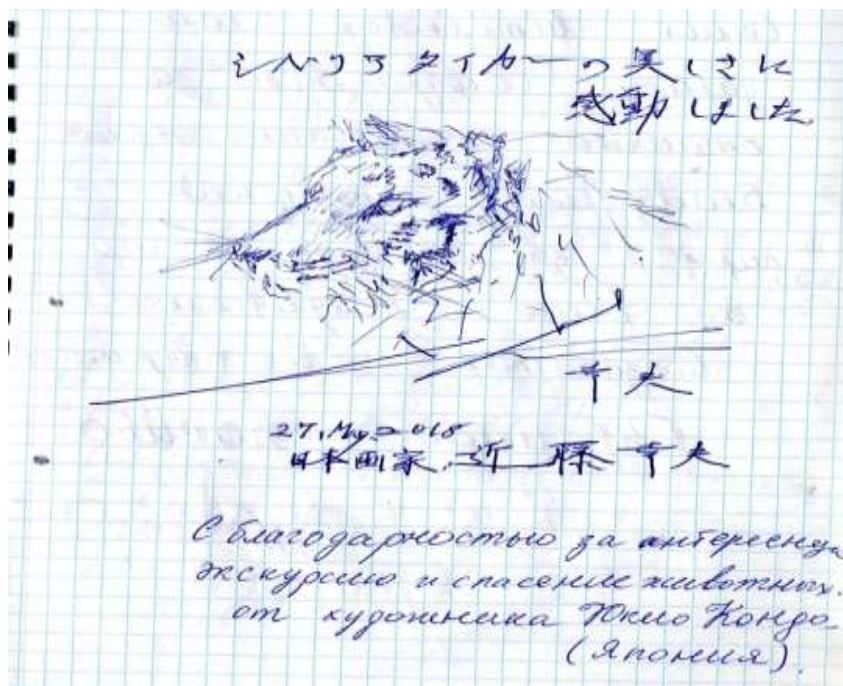 シベリアタイガーの美しさに
感動しました
幸夫
27. May. 2018
日本画家 近藤幸夫
С благодарностью за интересную
экскурсию и спасение животных.
от художника Юкио Кондо
(Япония).